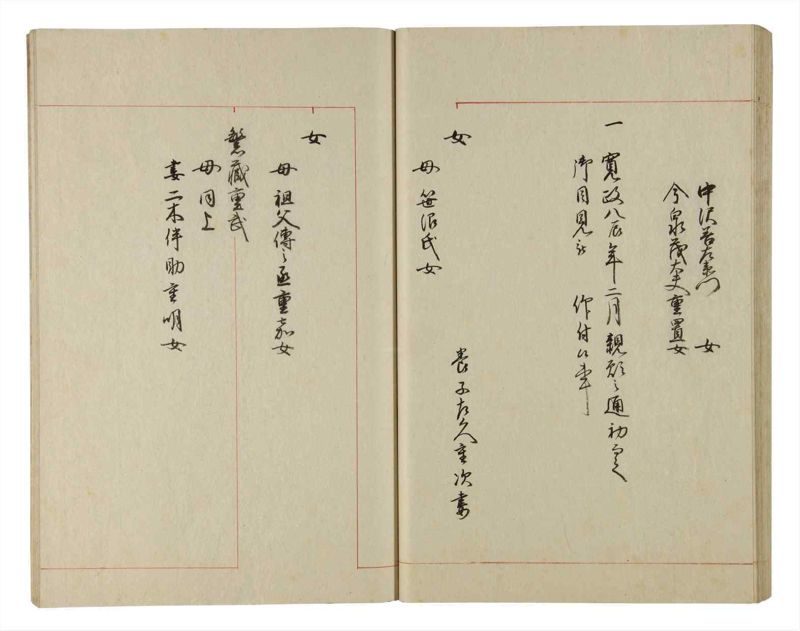 中沢吾左衛門 女
今泉茂太夫重置女
一 寛政八辰年二月親願之通初而
御目見被 仰付候事
女
母 笹沼氏女
養子左久重次妻
女
母 祖父傳之丞重嘉女
繁藏重武
母 同上
妻 二木伴助重明女